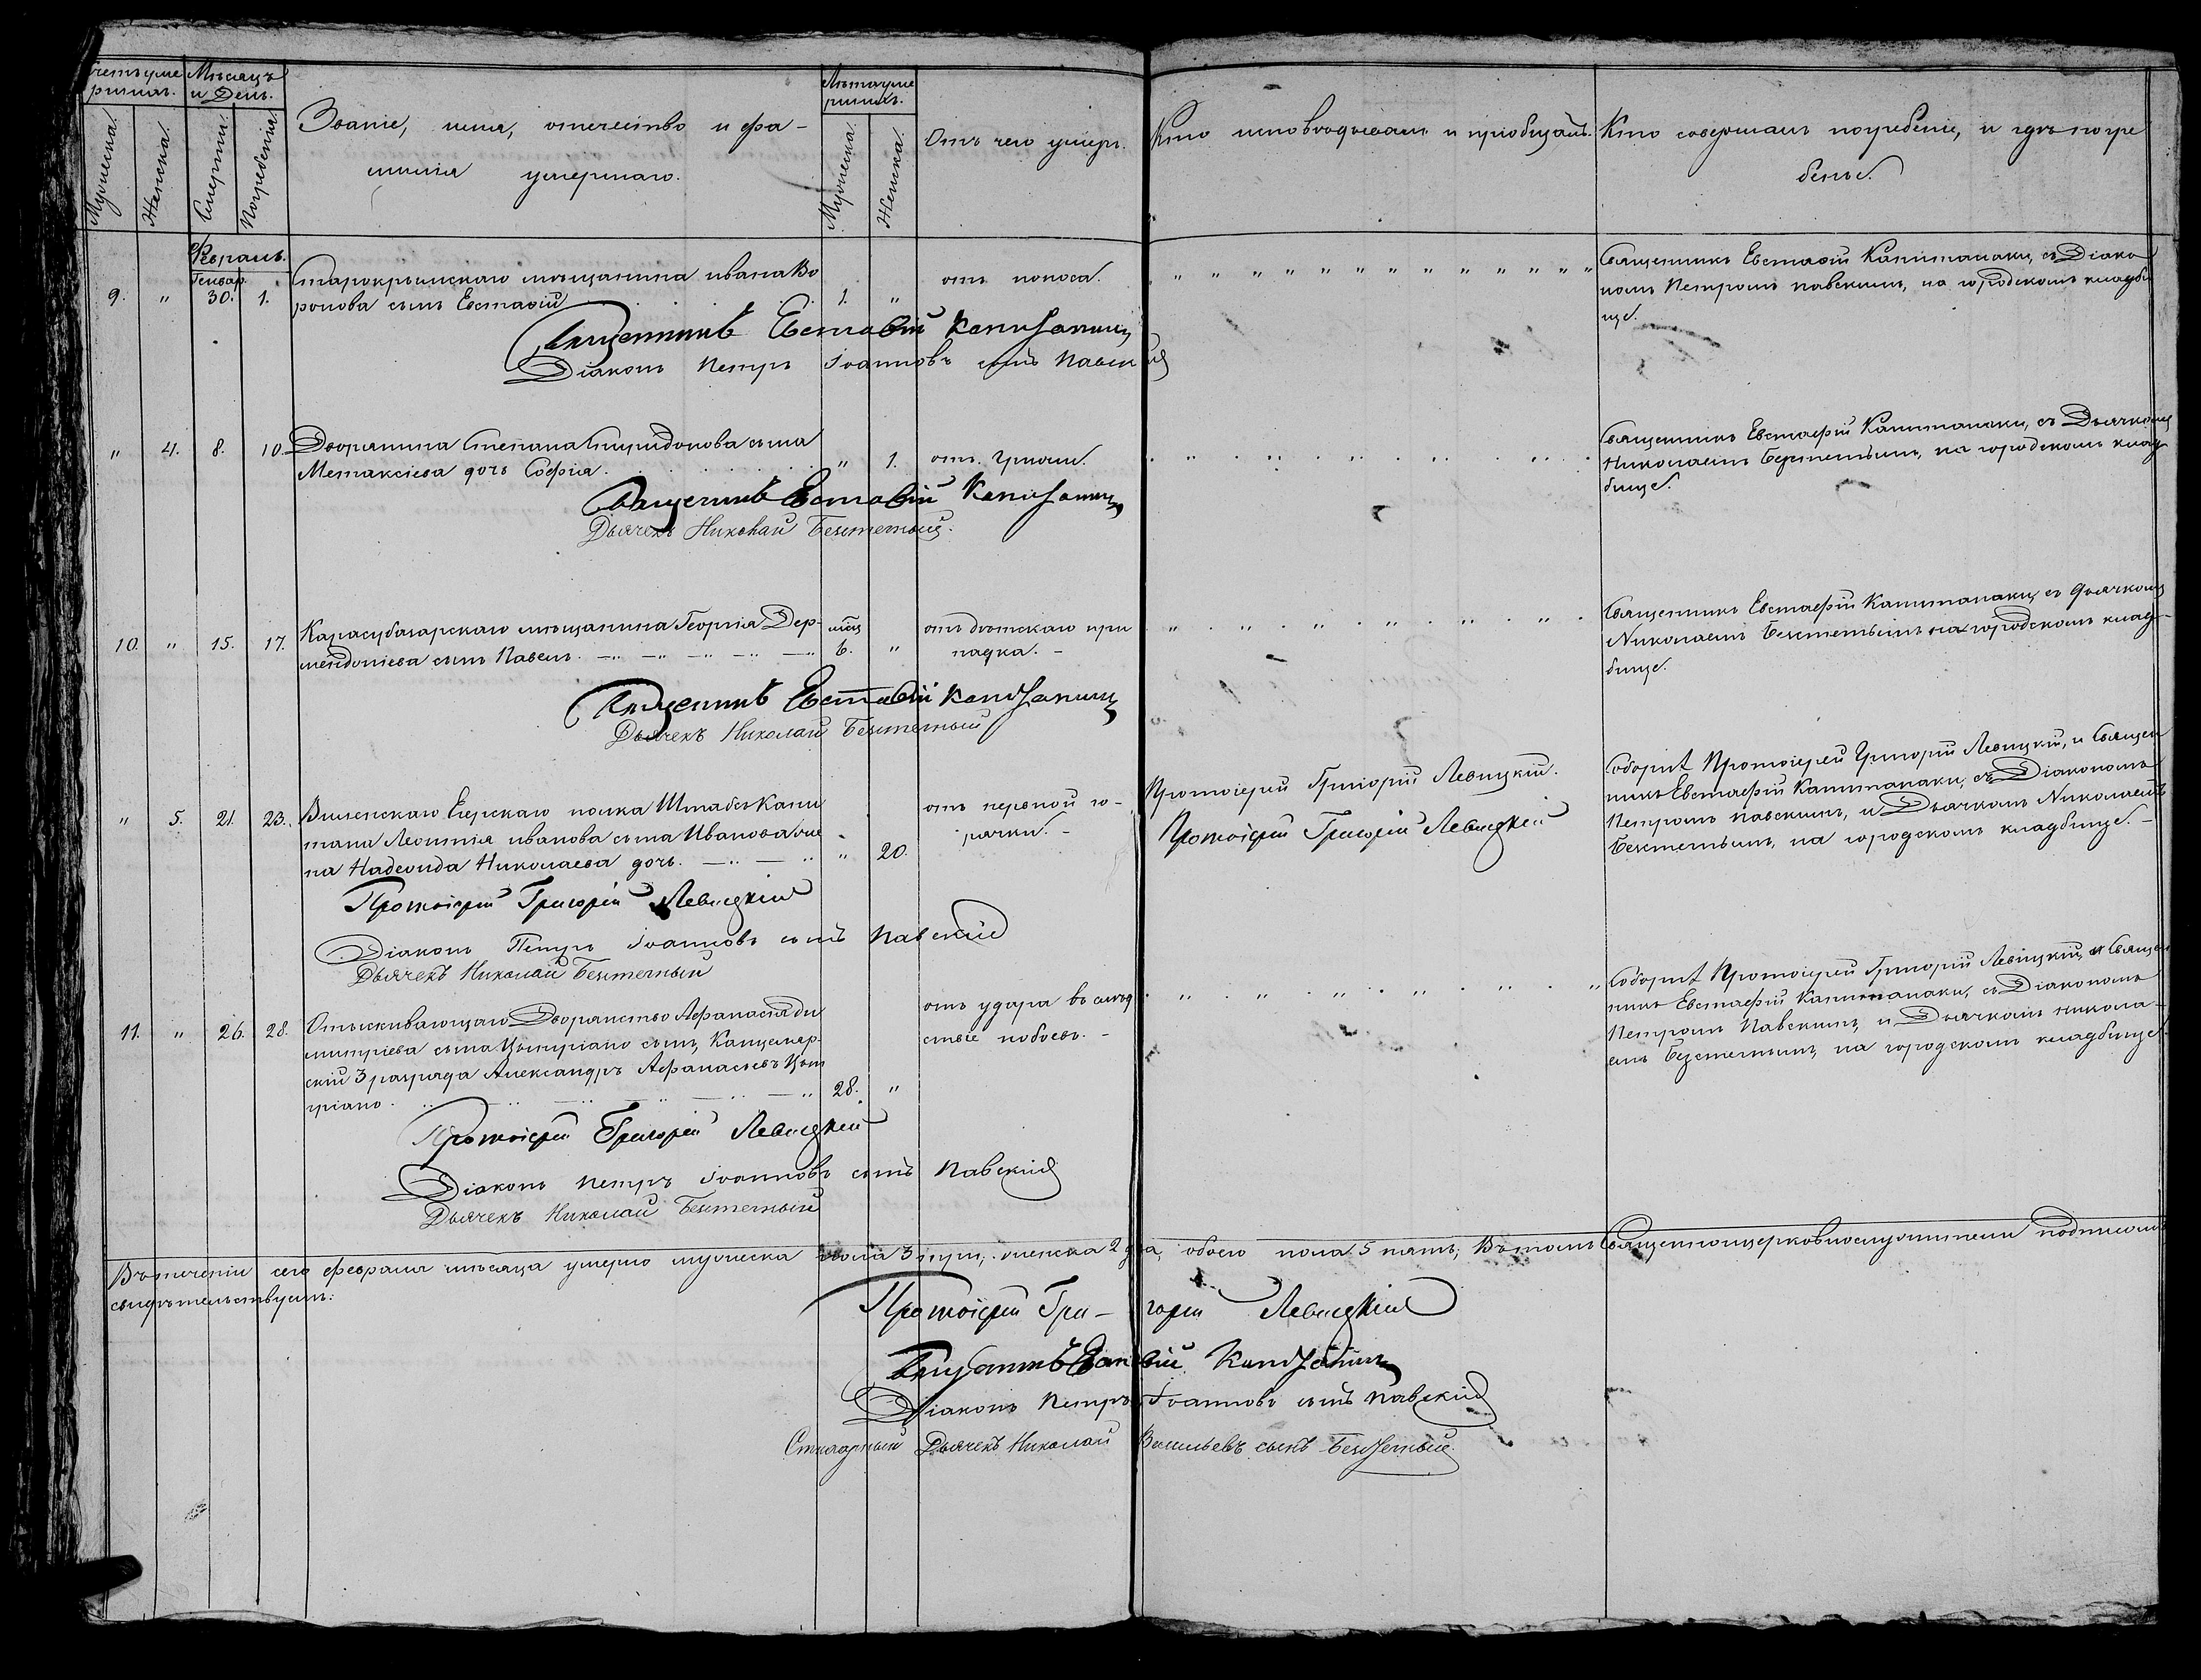 Счетъ уме
ршихъ.
Мѣсяцъ
и День.
Мужеска.
Женска.
Смерти.
Погребенія.
Званіе, имя, отечество и фа-
милія умершаго.
Лѣта уме
ршихъ.
Мужеска.
Женска.
Отъ чего умеръ.
Кто исповѣдывалъ и пріобщалъ.
Кто совершалъ погребеніе, и гдѣ погре
бенъ.
Февраль.
Генвар.
9. " 30. 1.
Старокрымскаго мѣщанина Ивана Во
ронова сынъ Евстафій 1. "
отъ поноса.
Священникъ Евстафій Капитанаки, съ Діако
номъ Петромъ Павскимъ, на городскомъ кладби
ще.
Священникъ Евстафій Капитанаки
Діаконъ Петръ Іоанновъ сынъ Павскій
" 4. 8. 10.
Дворянина Степана Спиридонова сына
Метаксіева дочь Софія. " 1.
отъ грижи.
Священникъ Евстафій Капитанаки, съ Дьячкомъ
Николаемъ Безсметнымъ, на городскомъ клад
бище.
Священникъ Евстафій Капитанаки
Дьячекъ Николай Безсметный.
10. " 15. 17.
Карасубазарскаго мѣщанина Георгія Дер-
менджіева сынъ Павелъ.
мѣц
6. "
отъ дѣтскаго при
падка.
Священникъ Евстафій Капитанаки съ дьячкомъ
Николаемъ Безсметнымъ на городскомъ клад-
бище.
Священникъ Евстафій Капитанаки
Дьячекъ Николай Безсметный
" 5. 21. 23.
Виленскаго Егерскаго полка Штабсъ Капи
тана Леонтія Иванова сына Иванова же
на Надежда Николаева дочь. " 20.
отъ нервной го-
рячки.
Протоіерей Григорій Левицкій.
Протоіерей Григорій Левицкій
Соборнѣ Протоіерей Григорій Левицкій, и Священ
никъ Евстафій Капитанаки, съ Діакономъ
Петромъ Павскимъ, и Дьячкомъ Николаемъ
Безсметнымъ, на городскомъ кладбище.
Протоіерей Григорій Левицкій
Діаконъ Петръ Іоанновъ сынъ Павскій
Дьячекъ Николай Безсметный
11. " 26. 28.
Отыскивающаго Дворянство Афанасія Ди
митріева сына Цыпріано сынъ, Канцеляр-
скій 3 разряда Александръ Афанасьевъ Цып
ріано. 28. "
отъ удара въ слѣд
ствіе побоевъ.
Соборнѣ Протоіерей Григорій Левицкій, и Священ
никъ Евстафій Капитанаки, съ Діакономъ
Петромъ Павскимъ, и Дьячкомъ Никола-
емъ Безсметнымъ, на городскомъ кладбище.
Протоіерей Григорій Левицкій
Діаконъ Петръ Іоанновъ сынъ Павскій
Дьячекъ Николай Безсметный
Въ теченіи сего февраля мѣсяца умерло мужеска пола 3 три, женска 2 два, обоего пола 5 пять; въ томъ Священноцерковнослужители подписомъ
свидѣтельствуемъ:
Протоіерей Григорій Левицкій
Священникъ Евстафій Капитанаки
Діаконъ Петръ Іоанновъ сынъ Павскій
Стихарный Дьячекъ Николай Васильевъ сынъ Безсметный